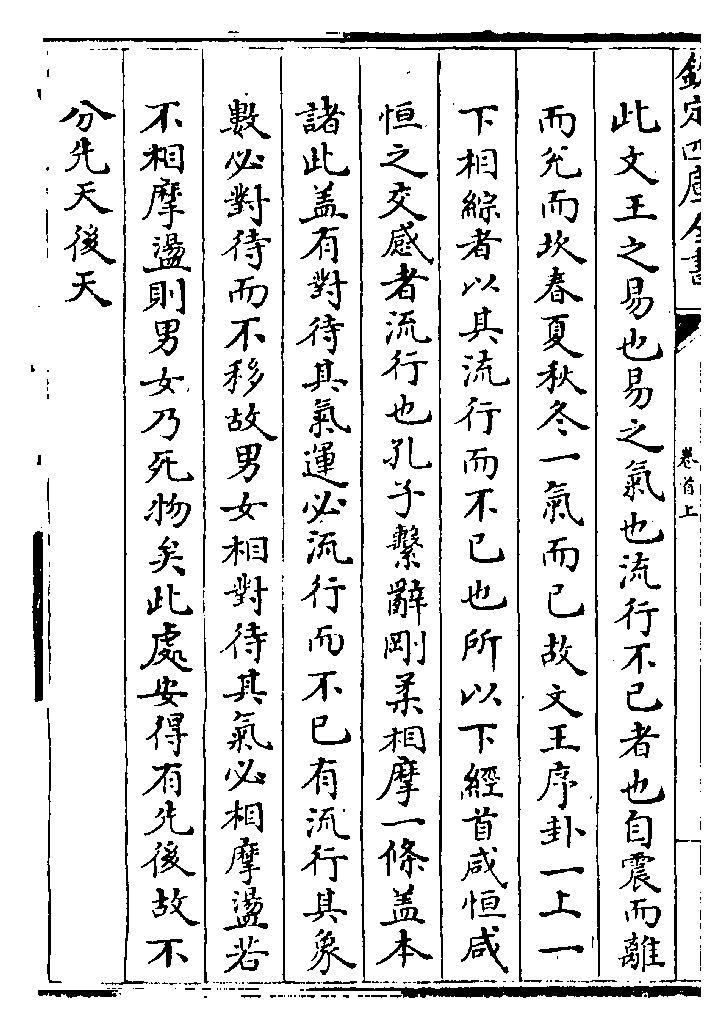 欽定四庫全書
卷首上
此文王之易也易之氣也流行不已者也自震而離
而兊而坎春夏秋冬一氣而已故文王序卦一上一
下相綜者以其流行而不已也所以下經首咸恒咸
恒之交感者流行也孔子繫辭剛柔相摩一條蓋本
諸此盖有對待其氣運必流行而不已有流行其象
數必對待而不移故男女相對待其氣必相摩盪若
不相摩盪則男女乃死物矣此處安得有先後故不
分先天後天